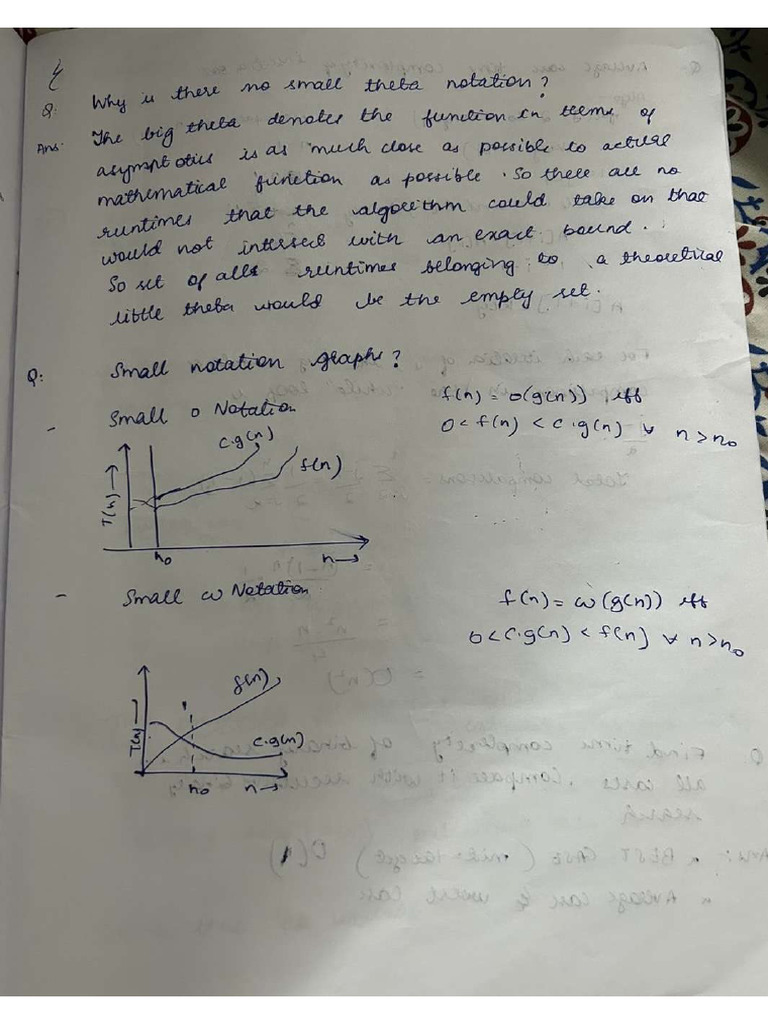 Q: Why is there no small theta notation?
Ans: The big theta denotes the function in terms of
asymptotics is as much close as possible to actual
mathematical function as possible. So there are no
runtimes that the algorithm could take on that
would not intersect with an exact bound.
So set of alls runtimes belonging to a theoretical
little theta would be the empty set.
Q: Small notation graphs?
- Small o Notation
f(n) = o(g(n)) iff
0 < f(n) < c.g(n) ∀ n > n₀
c.g(n)
f(n)
T(n) →
n₀
n →
- Small ω Notation
f(n) = ω(g(n)) iff
0 < c.g(n) < f(n) ∀ n > n₀
f(n)
c.g(n)
T(n) →
n₀
n →